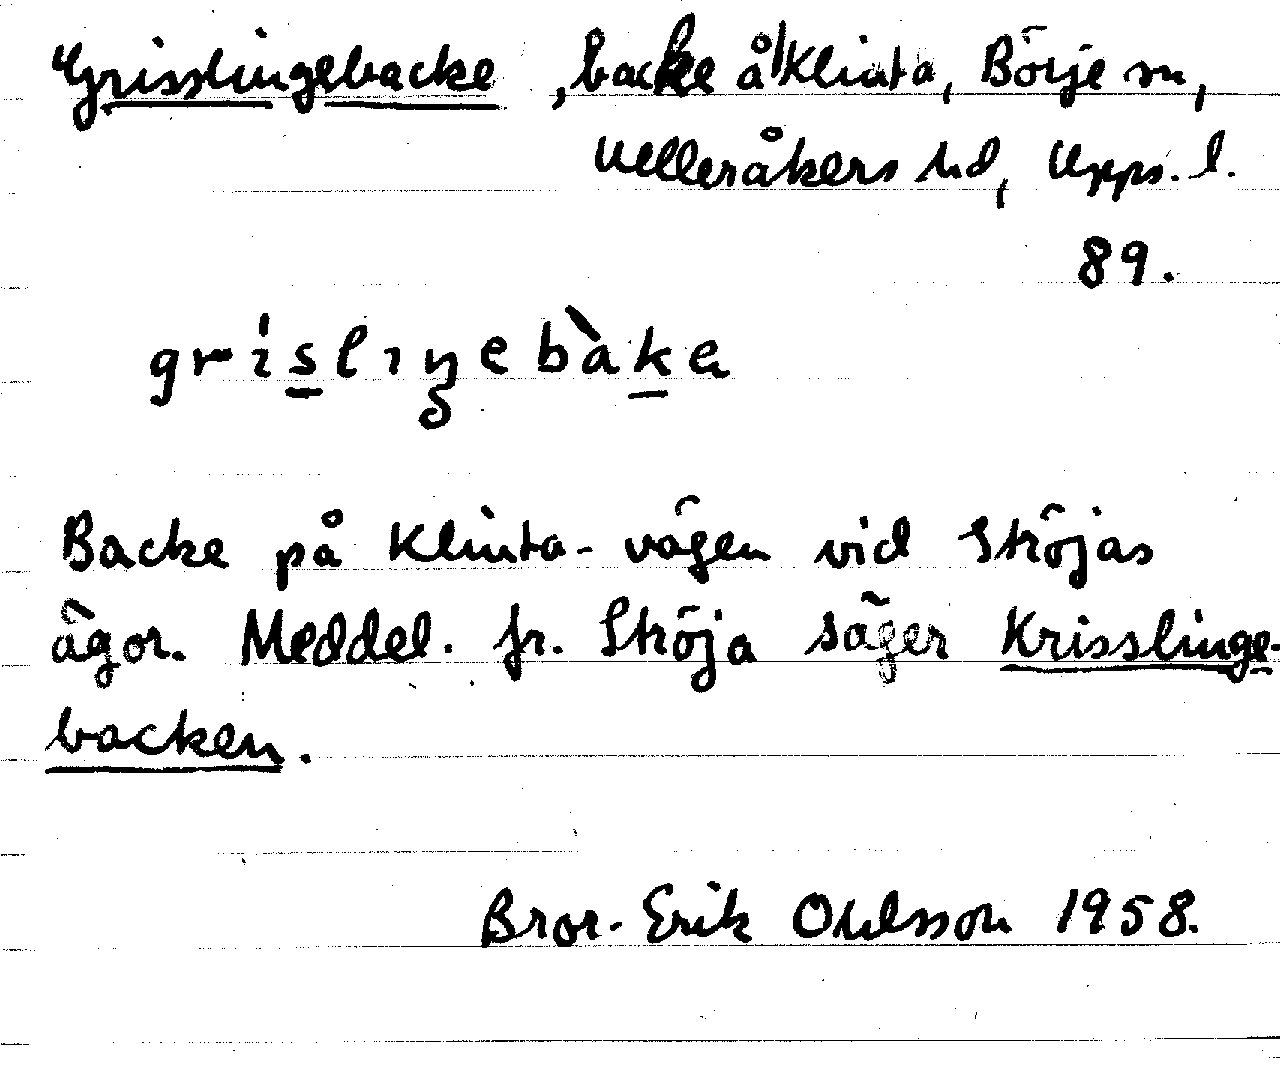 Grisslingebacke, backe å Klinta, Börje sn,
Ulleråkers hd, Upps. l.
89.
gríslıŋebàkɐ
Backe på Klinta-vägen vid Ströjas
ägor. Meddel. fr. Ströja säger Krisslinge-
backen.
Bror-Erik Ohlsson 1958.